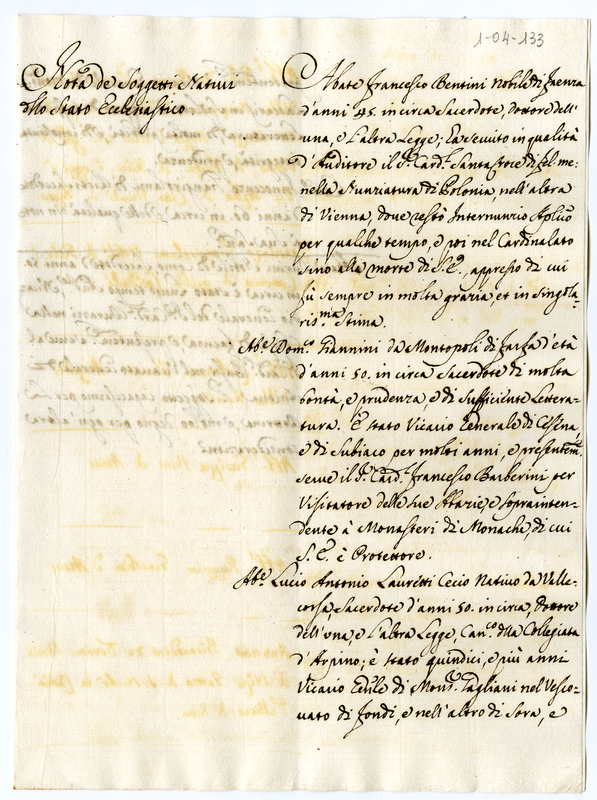 1-04-133
Nota de Soggetti Nativi
dllo Stato Ecclesiastico
Abate Francesco Bentini Nobile di Faenza
d'anni 45. in circa Sacerdote, dottore dell'
una, e l'altra Legge; ha servito in qualità
d'Auditore il Sr. Card.l Santa Croce di fel. me:
nella Nunziatura di Polonia, nell'altra
di Vienna, dove restò Internunzio Aplico
per qualche tempo, e poi nel Cardinalato
sino alla morte di S. Em.a, appresso di cui
fù sempre in molta grazia, et in singola-
ris.ma Stima.
Ab.e Dom.co Giannini da Montopoli di Farfa d'età
d'anni 50. in circa Sacerdote di molta
bontà, e prudenza, e di sufficiente Lettera-
tura. È stato Vicario Generale di
e di Subiaco per molti anni, e presentem.te
serve il Sr. Card.l Francesco Barberini per
Visitatore delle sue Abazie, e soprainten-
dente à Monasteri di Monache, di cui
S. Em.a è Protettore.
Ab.e Lucio Antonio Lauretti Cecio Nativo da Valle-
corsa, Sacerdote d'anni 50. in circa, dottore
dell'una, e l'altra Legge, Can.co dlla Collegiata
d'Arpino; è stato quindici, e più anni
Vicario Genle di Mons.r Tagliani nel Vesco-
vato di Fondi, e nell'altro di Sora, e